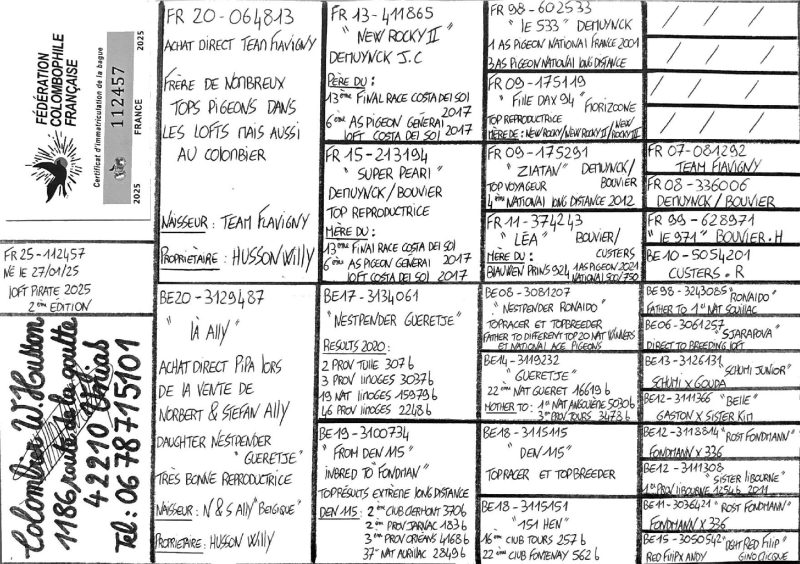 FÉDÉRATION
COLOMBOPHILE
FRANÇAISE
Certificat d'immatriculation de la bague
112457
2025
FRANCE
2025
FR 25-112457
NÉ LE 27/01/25
LOFT PIRATE 2025
2ème ÉDITION
Colombier W Husson
1186 route de la goutte
42210 Unias
Tel: 0678715101
FR 20-064813
ACHAT DIRECT TEAM FLAVIGNY
FRÈRE DE NOMBREUX
TOPS PIGEONS DANS
LES LOFTS MAIS AUSSI
AU COLOMBIER
NAISSEUR: TEAM FLAVIGNY
PROPRIETAIRE: HUSSON WILLY
BE20-3129487
"LÀ ALLY"
ACHAT DIRECT PIPA LORS
DE LA VENTE DE
NORBERT & STEFAN ALLY
DAUGHTER NESTPENDER
"GUERETJE"
TRÈS BONNE REPRODUCTRICE
NAISSEUR: N & S ALLY "BELGIQUE"
PROPRIETAIRE: HUSSON WILLY
FR 13-411865
"NEW ROCKY II"
DEMUYNCK J.C
PÈRE DU:
13ème FINAL RACE COSTA DEL SOL
2017
6ème AS PIGEON GENERAL
LOFT COSTA DEL SOL 2017
FR 15-213194
"SUPER PEARL"
DEMUYNCK/BOUVIER
TOP REPRODUCTRICE
MÈRE DU:
13ème FINAL RACE COSTA DEL SOL
2017
6ème AS PIGEON GENERAL
LOFT COSTA DEL SOL 2017
BE17-3134061
"NESTPENDER GUERETJE"
RESULTS 2020:
2 PROV TULLE 307 b
3 PROV LIMOGES 3037 b
19 NAT LIMOGES 15979 b
46 PROV LIMOGES 2248 b
BE 19-3100734
"FROM DEN 115"
INBRED TO "FONDMAN"
TOP RESULTS EXTRÈME LONG DISTANCE
DEN 115: 2ème CLUB CLERMONT 370 b
2ème PROV JARNAC 183 b
3ème PROV ORLÉANS 4168 b
37ème NAT AURILLAC 2849 b
FR 98-602533
"LE 533" DEMUYNCK
1 AS PIGEON NATIONAL FRANCE 2001
3 AS PIGEON NATIONAL LONG DISTANCE
FR 09-175119
"FILLE DAX 94" FIORIZOONE
TOP REPRODUCTRICE
MÈRE DE: NEW ROCKY/NEW ROCKY II/ROCKY II
FR 09-175291
"ZLATAN" DEMUYNCK/
TOP VOYAGEUR BOUVIER
4ème NATIONAL LONG DISTANCE 2012
FR 11-374243
"LÉA" BOUVIER/
MÈRE DU: CUSTERS
BLAUWEN PRINS 924 1 AS PIGEON 2021
NATIONAL 500/750
BE08-3081207
"NESTPENDER RONALDO"
TOPRACER ET TOPBREEDER
FATHER TO DIFFERENT TOP 20 NAT WINNERS
ET NATIONAL ACE PIGEONS
BE14-3119232
"GUERETJE"
22ème NAT GUERET 16619 b
MOTHER TO: 1er NAT ANGOULÈME 5030 b
3ème PROV TOURS 3478 b
BE18-3115115
"DEN 115"
TOPRACER ET TOPBREEDER
BE18-3115151
"151 HEN"
16ème CLUB TOURS 257 b
22ème CLUB FONTENAY 562 b
FR 07-081292
TEAM FLAVIGNY
FR 08-336006
DEMUYNCK / BOUVIER
FR 99-628971
"LE 971" BOUVIER.H
BE 10-5054201
CUSTERS.R
BE98-3243085 "RONALDO"
FATHER TO 1er NAT SOUILLAC
BE06-3061257 "SJARAPOVA"
DIRECT TO BREEDING LOFT
BE13-3126131 "SCHUMI JUNIOR"
SCHUMI X GOUDA
BE12-3111366 "BELLE"
GASTON X SISTER KIM
BE12-3118814 "ROST FONDMANN"
FONDMANN X 336
BE12-3111308 "SISTER LIBOURNE"
1er PROV LIBOURNE 1254 b 2011
BE11-3036421 "ROST FONDMANN"
FONDMANN X 336
BE15-3050542 "DGHT RED FILIP"
RED FILIP X ANDY GINO CLICQUE